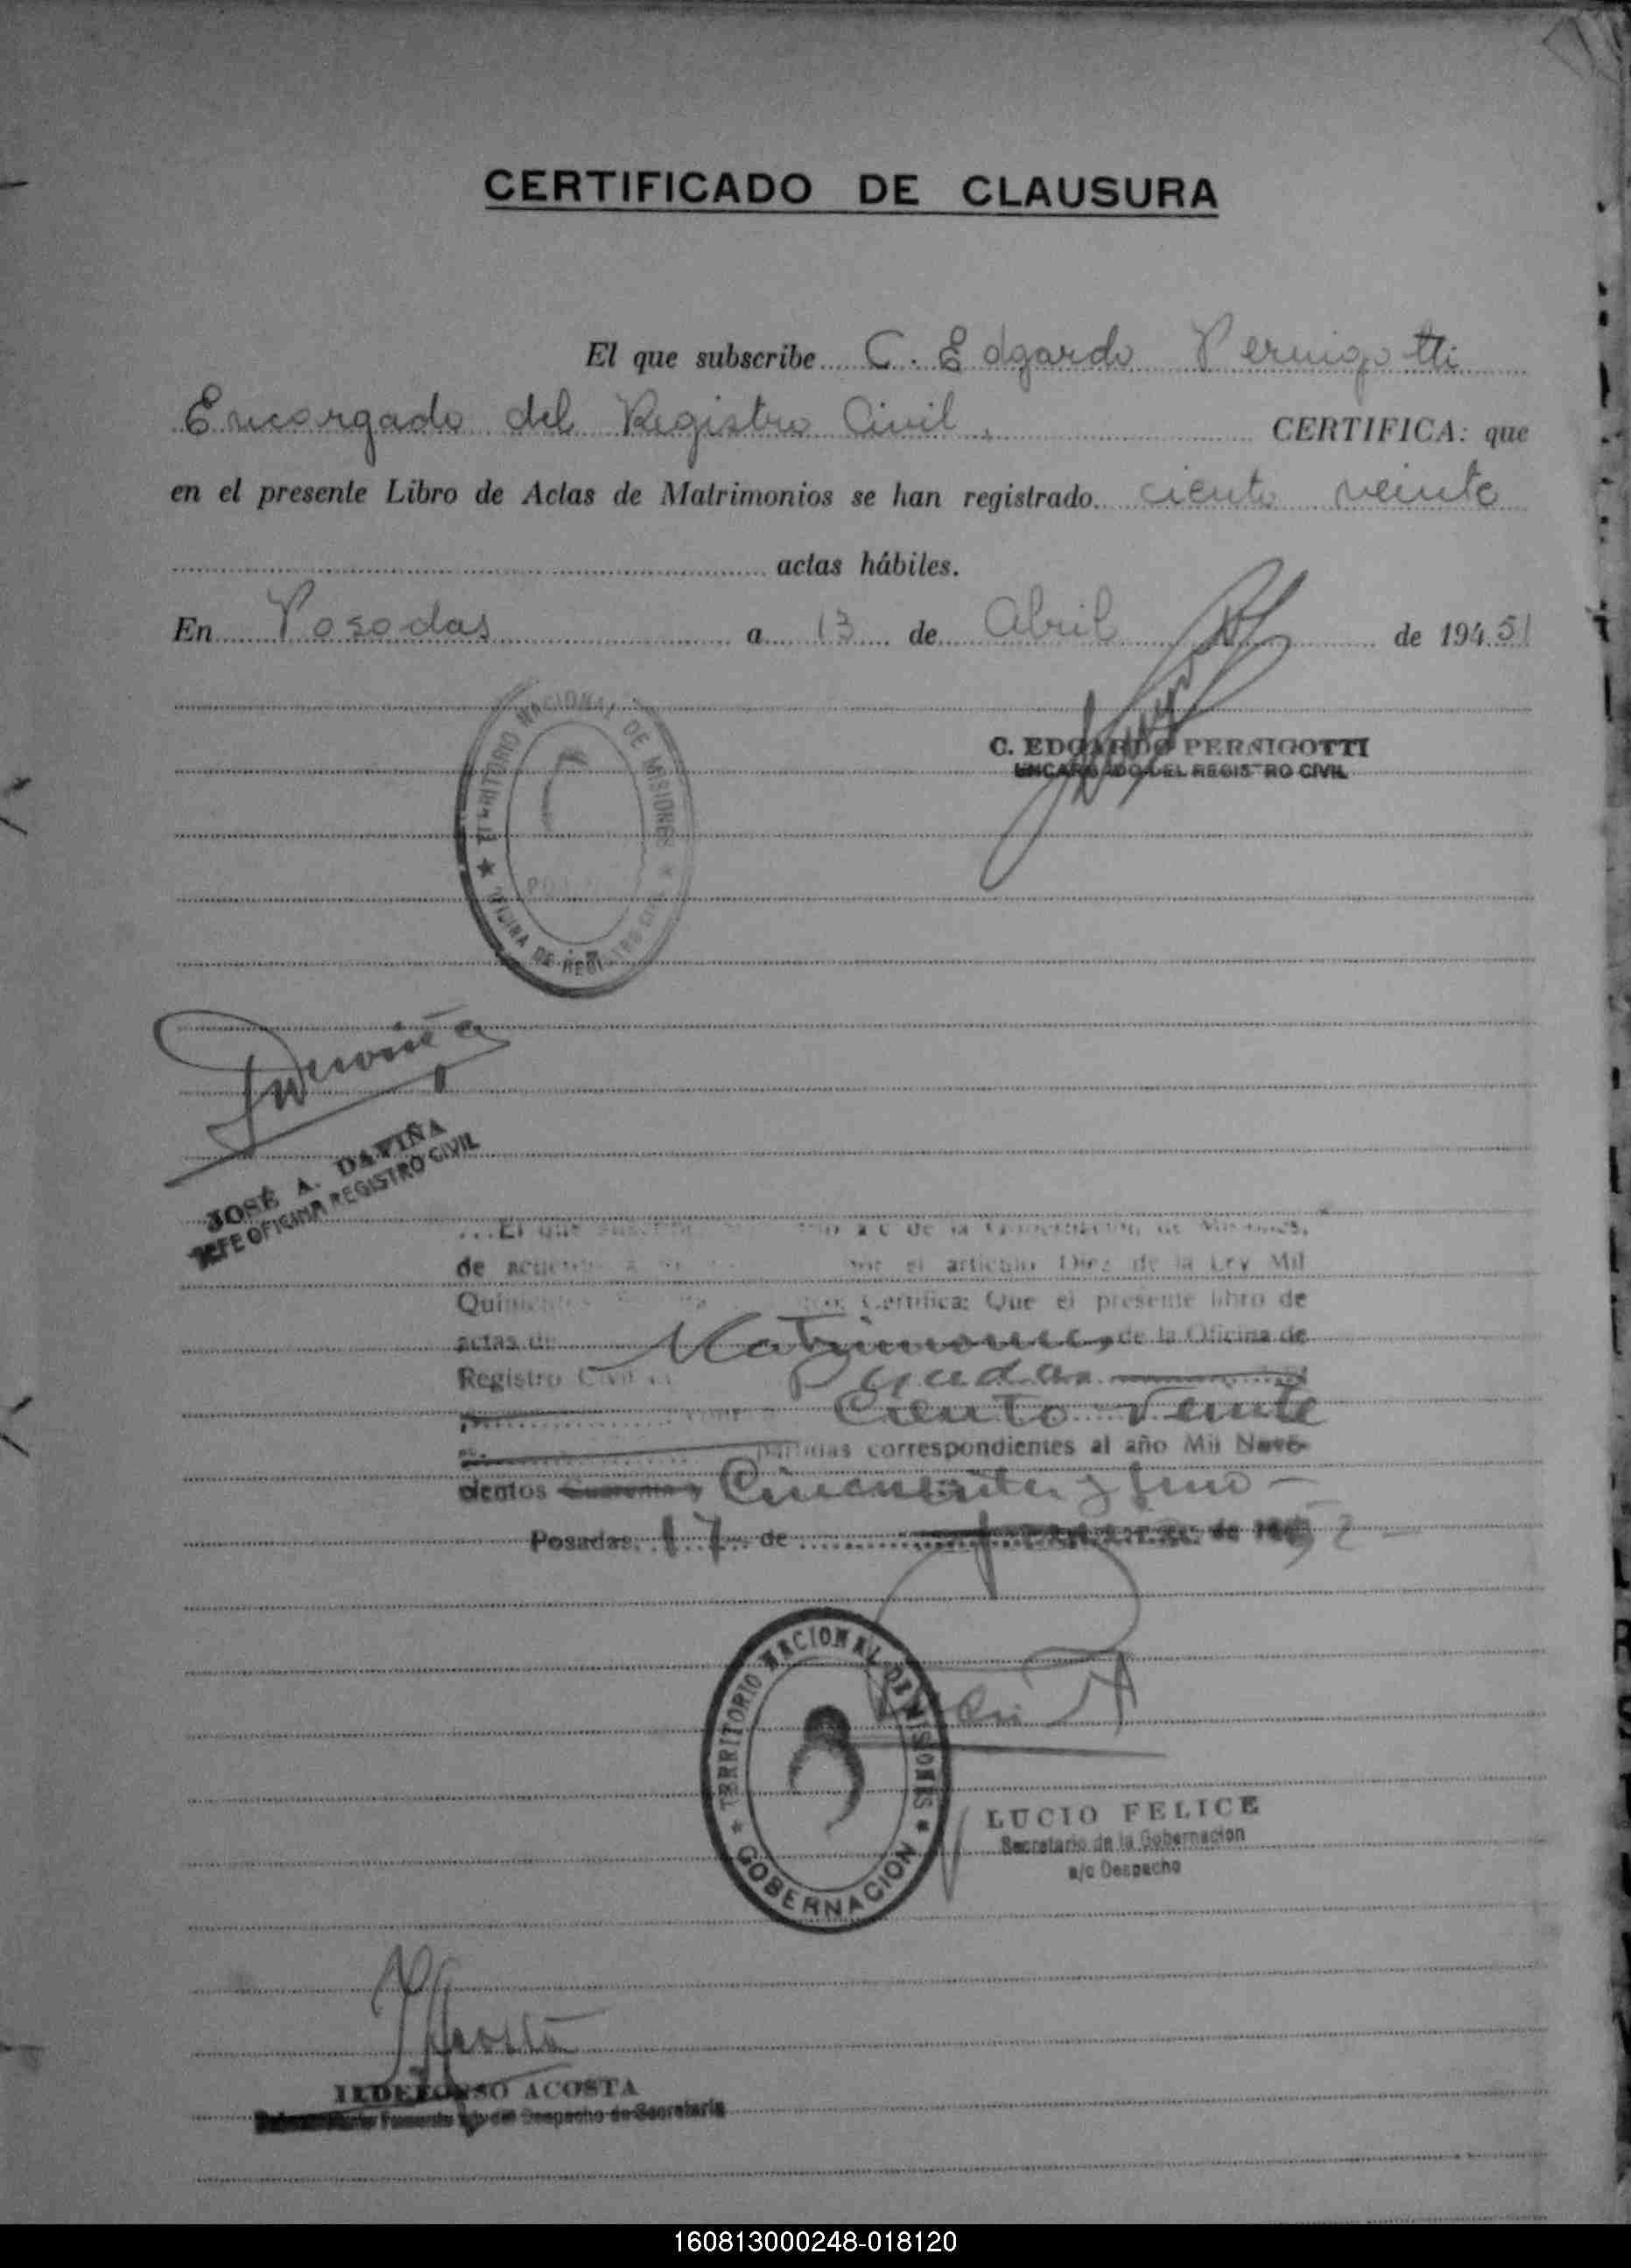 CERTIFICADO DE CLAUSURA
El que subscribe C. Edgardo Pernigotti
Encargado del Registro Civil. CERTIFICA: que
en el presente Libro de Actas de Matrimonios se han registrado ciento veinte
actas hábiles.
En Posadas a 13 de Abril de 194 51
TERRITORIO NACIONAL DE MISIONES
OFICINA DE REGISTRO CIVIL
C. EDGARDO PERNIGOTTI
ENCARGADO DEL REGISTRO CIVIL
JOSÉ A. DAVIÑA
JEFE OFICINA REGISTRO CIVIL
El que a c de la Gobernación de Misiones,
de acuerdo a por el artículo Diez de la Ley Mil
Quinientos Certifica: Que el presente libro de
actas de Matrimonios de la Oficina de
Registro Civil Posadas
Ciento Veinte
partidas correspondientes al año Mil Nove-
cientos Cuarenta y Cincuenta y Uno -
Posadas, 17 de de 2
TERRITORIO NACIONAL DE MISIONES
GOBERNACION
LUCIO FELICE
Secretario de la Gobernacion
a/c Despacho
ILDEFONSO ACOSTA
Fomento del Despacho de Secretaria
160813000248-018120